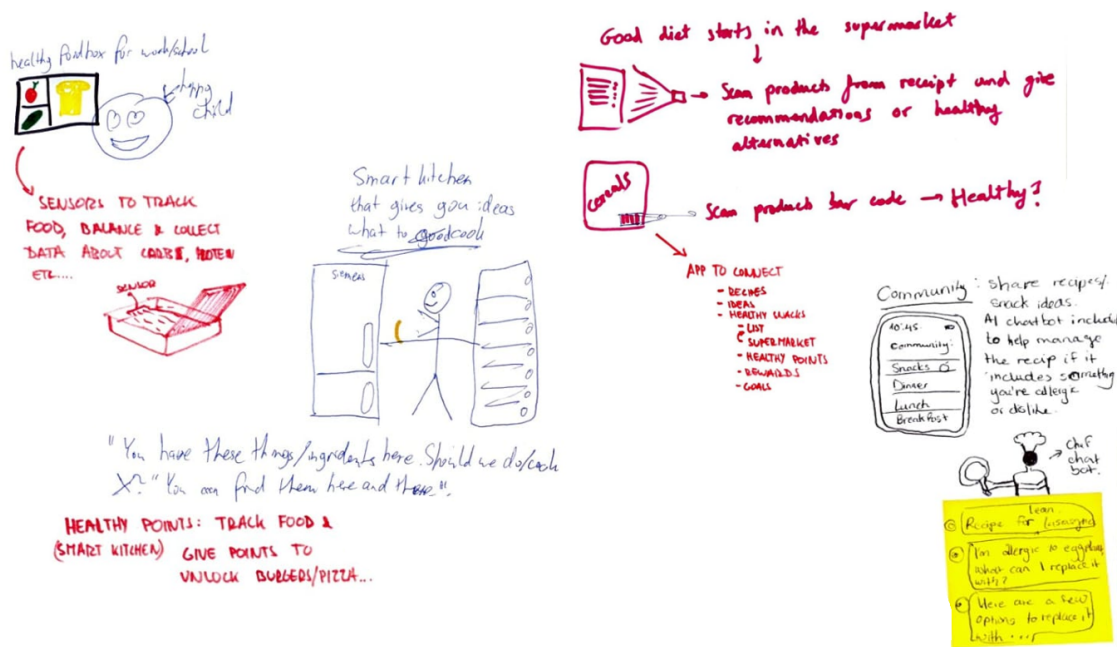 healthy foodbox for work/school
child
SENSORS TO TRACK
FOOD, BALANCE & COLLECT
DATA ABOUT CARBS, PROTEN
ETC....
SENSOR
Smart kitchen
that gives you ideas
what to cook
SIEMENS
"You have these things/ingredients here. Should we do/cook
X?" "You can find them here and there".
HEALTHY POINTS: TRACK FOOD &
(SMART KITCHEN) GIVE POINTS TO
UNLOCK BURGERS/PIZZA...
Good diet starts in the supermarket
Scan products from receipt and give
recommendations or healthy
alternatives
cereals
Scan products bar code → Healthy?
APP TO CONNECT
- RECIPES
- IDEAS
- HEALTHY SNACKS
- LIST
SUPERMARKET
- HEALTHY POINTS
- REWARDS
- GOALS
Community: share recipes/
snack ideas.
AI chatbot includ
to help manage
the recip if it
includes something
you're allergic
or dislike.
10:45
Community:
Snacks
Dinner
Lunch
Breakfast
chef
chat
bot.
lean
Recipe for lasagna
I'm allergic to eggplant,
what can I replace it
with?
Here are a few
options to replace it
with ....